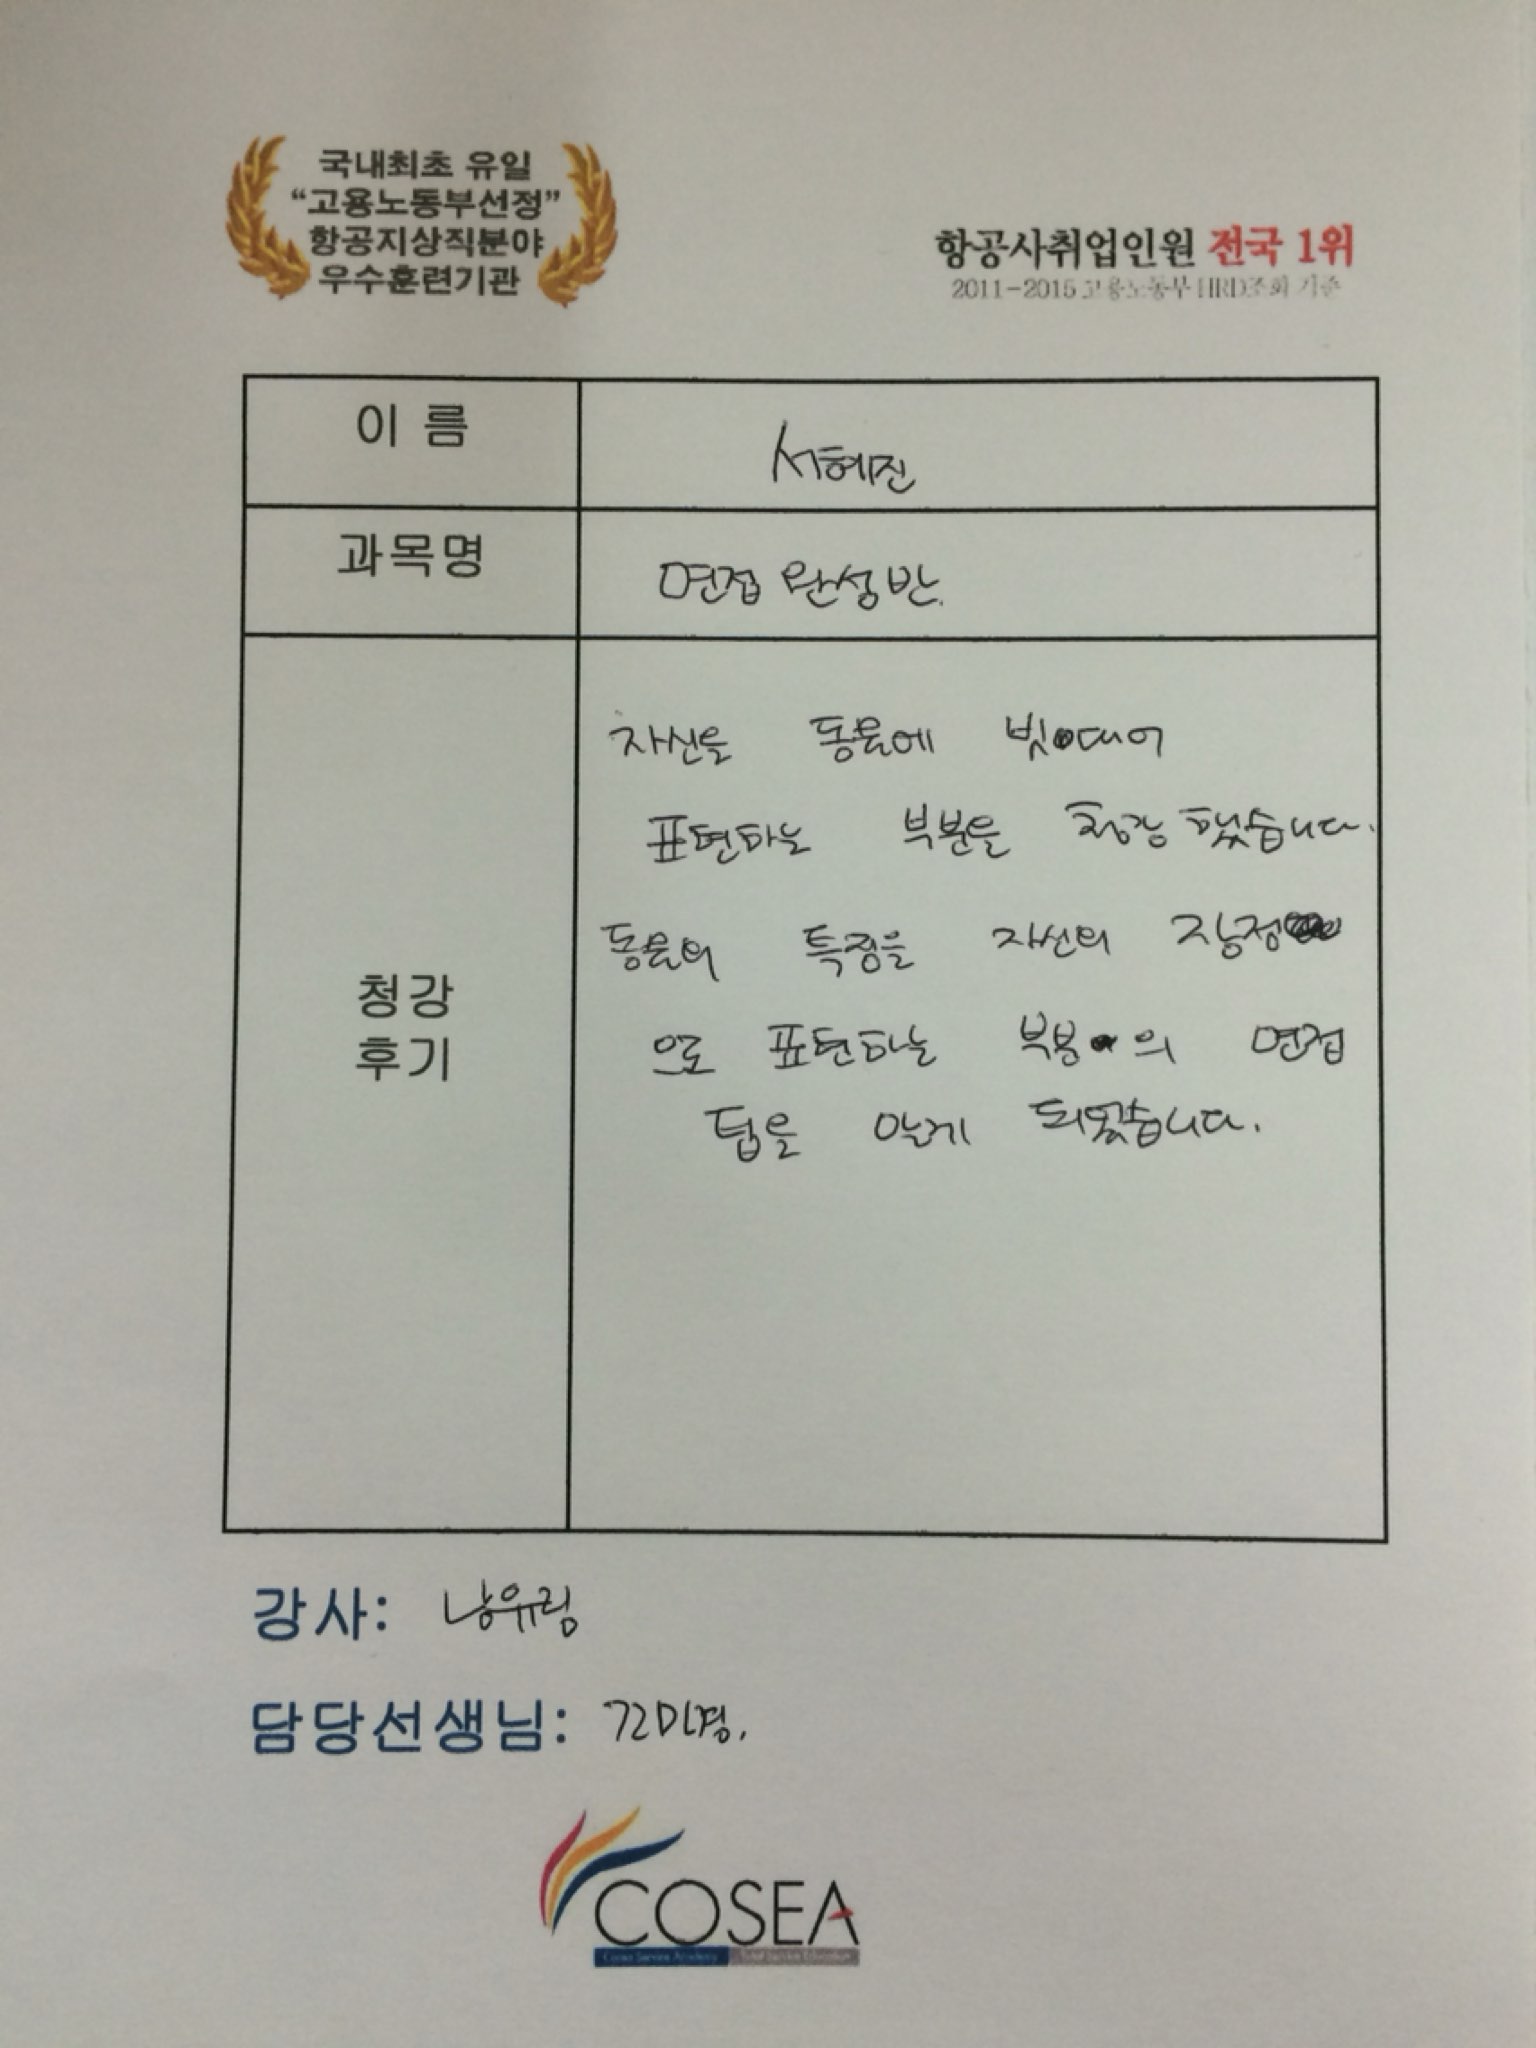 국내최초 유일
“고용노동부선정”
항공지상직분야
우수훈련기관
항공사취업인원 전국 1위
2011-2015 고용노동부 HRD조회 기준
이 름
서혜진
과목명
면접 완성반.
청강
후기
자신을 동물에 빗대어
표현하는 부분을 청강 했습니다.
동물의 특징을 자신의 장점
으로 표현하는 부분의 면접
팁을 알게 되었습니다.
강사: 낭유림
담당선생님: 김미경.
COSEA
Cosea Service Academy Total Service Education